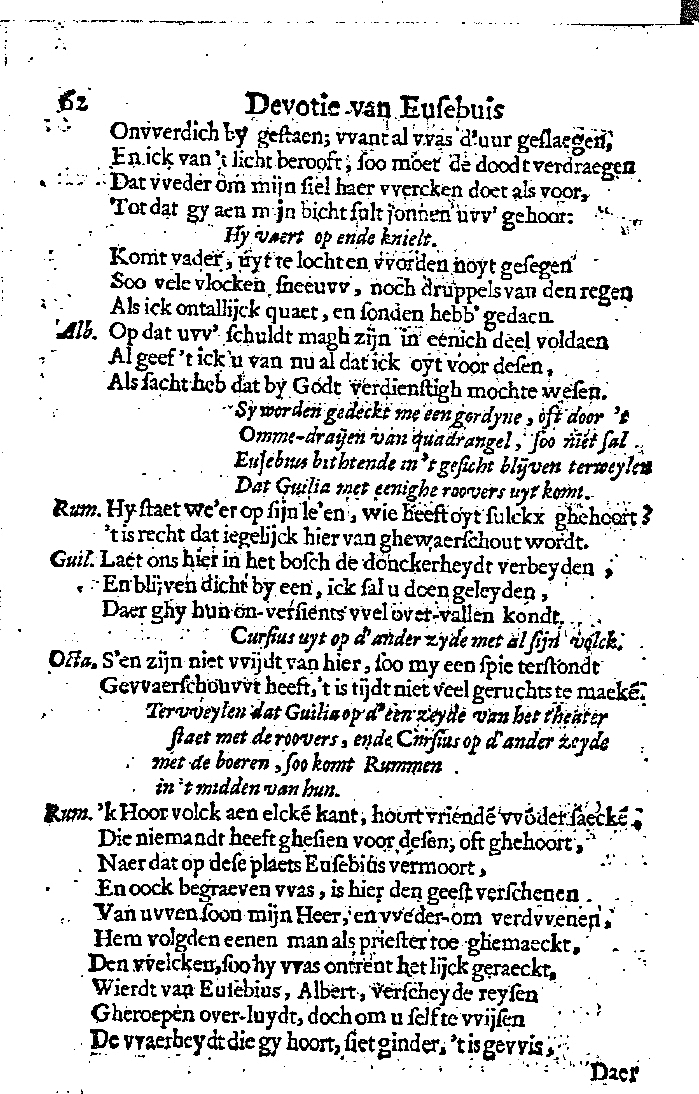 62 Devotie van Eusebuis
Onvverdich by gestaen; vvant al vvas d'uur geslaegen,
En ick van 't licht berooft, soo moet de doodt verdraegen
Dat vveder om mijn siel haer vvercken doet als voor,
Tot dat gy aen mijn bicht sult jonnen uvv' gehoor:
Hy vaert op ende knielt.
Komt vader, uyt te lochten vvorden noyt gesegen
Soo vele vlocken sneeuvv, noch druppels van den regen
Als ick ontallijck quaet, en sonden hebb' gedaen
Alb. Op dat uvv' schuldt magh zijn in eenich deel voldaen
Al geef 't ick u van nu al dat ick oyt voor desen,
Als sacht heb dat by Godt verdienstigh mochte wesen.
Sy worden gedeckt me een gordyne, oft door 't
Omme-draijen van quadrangel, soo niet sal
Eusebius bichtende in 't gesicht blijven terweylen
Dat Guilia met eenighe roovers uyt komt.
Rum. Hy staet we'er op sijn le'en, wie heeft oyt sulckx ghehoort?
't is recht dat iegelijck hier van ghewaerschout wordt.
Guil. Laet ons hier in het bosch de donckerheydt verbeyden,
En blijven dicht by een, ick sal u doen geleyden,
Daer ghy hun on-versients vvel over-vallen kondt.
Cursius uyt op d'ander zyde met al sijn volck.
Octa. S'en zijn niet vvijdt van hier, soo my een spie terstondt
Gevvaerschouvvt heeft, 't is tijdt niet veel geruchts te maeké.
Tervveylen dat Guilia op d'een zeyde van het theater
staet met de roovers, ende Cursius op d'ander zeyde
met de boeren, soo komt Rummen
in 't midden van hun.
Rum. 'k Hoor volck aen elcké kant, hoort vriendé vvóder saecké,
Die niemandt heeft ghesien voor desen, oft ghehoort,
Naer dat op dese plaets Eusebius vermoort,
En oock begraeven vvas, is hier den geest verschenen
Van uvven soon mijn Heer, en vveder-om verdvvenen,
Hem volgden eenen man als priester toe ghemaeckt,
Den vvelcken, soo hy vvas ontrent het lijck geraeckt,
Wierdt van Eusebius, Albert, verscheyde reysen
Gheroepen over-luydt, doch om u self te vvijsen
De vvaerheydt die gy hoort, siet ginder, 't is gevvis,
Daer